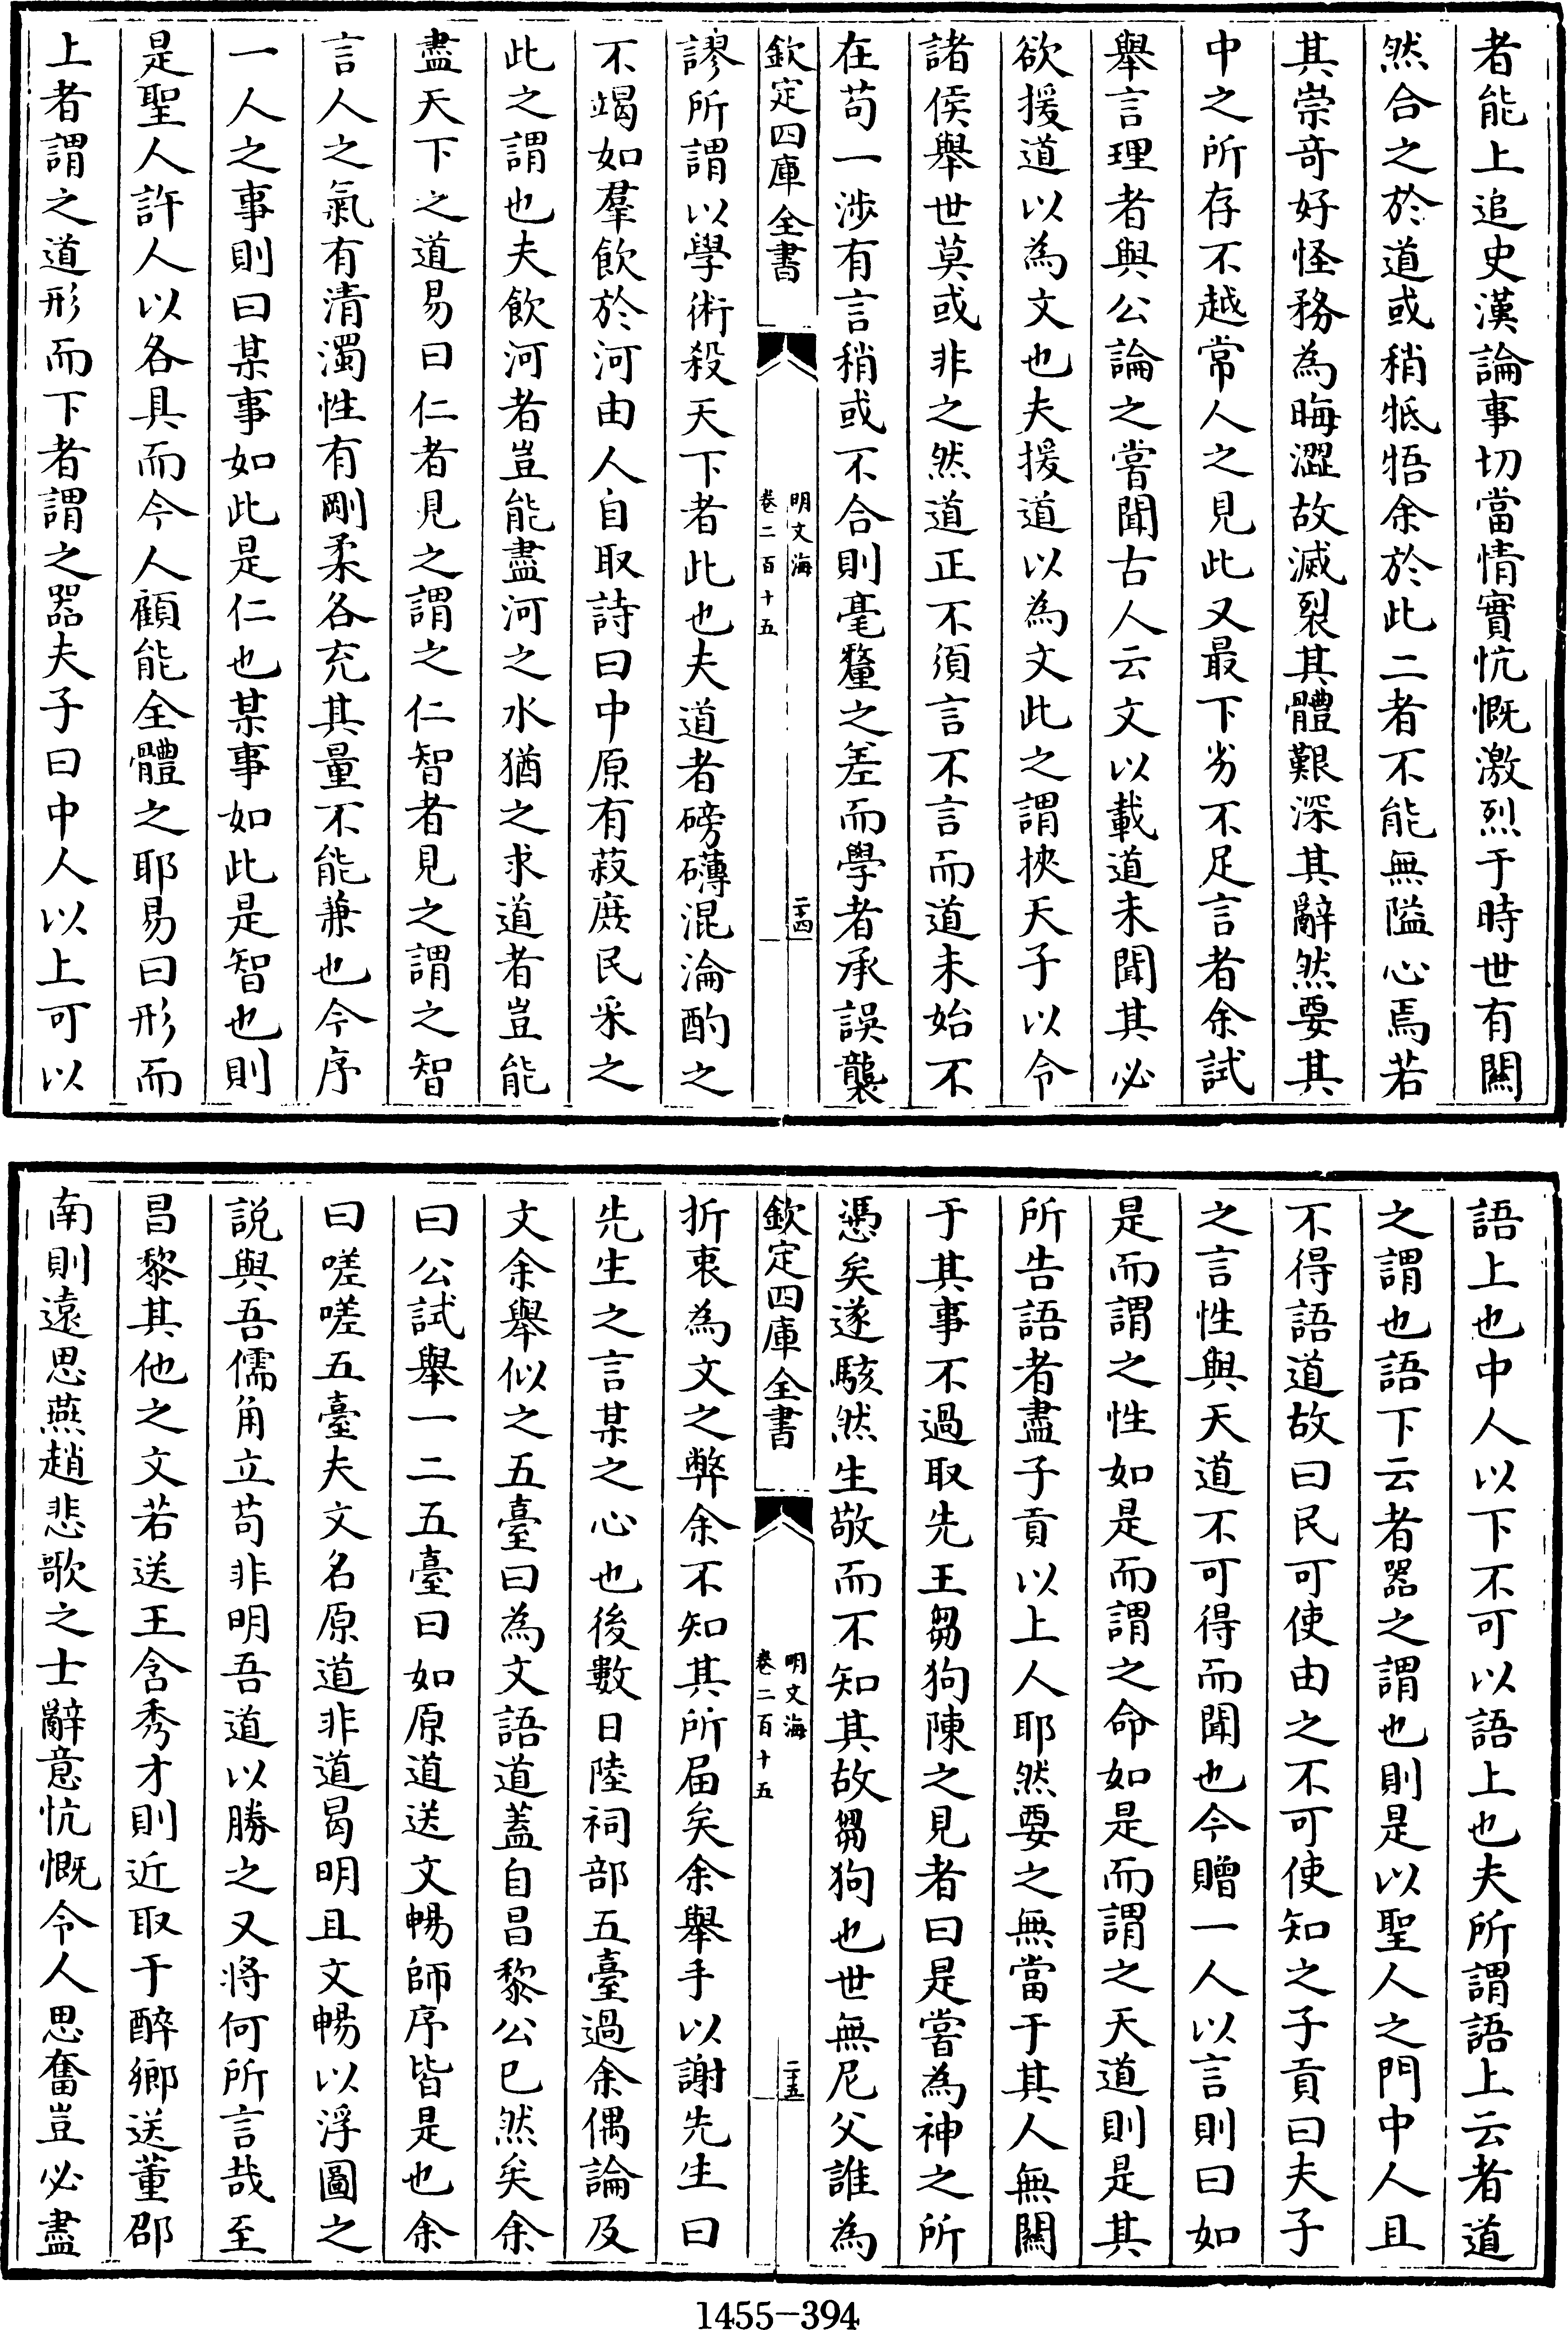 者能上追史漢論事切當情實忼慨激烈于時世有闗
然合之於道或稍牴牾余於此二者不能無隘心焉若
其崇竒好怪務為晦澀故滅裂其體艱深其辭然要其
中之所存不越常人之見此又最下劣不足言者余試
舉言理者與公論之嘗聞古人云文以載道未聞其必
欲援道以為文也夫援道以為文此之謂挾天子以令
諸侯舉世莫或非之然道正不須言不言而道未始不
在苟一涉有言稍或不合則毫釐之差而學者承誤襲
欽定四庫全書
明文海
卷二百十五
二十四
謬所謂以學術殺天下者此也夫道者磅礴混淪酌之
不竭如羣飲於河由人自取詩曰中原有菽庶民采之
此之謂也夫飲河者豈能盡河之水猶之求道者豈能
盡天下之道易曰仁者見之謂之仁智者見之謂之智
言人之氣有清濁性有剛柔各充其量不能兼也今序
一人之事則曰某事如此是仁也某事如此是智也則
是聖人許人以各具而今人顧能全體之耶易曰形而
上者謂之道形而下者謂之器夫子曰中人以上可以
語上也中人以下不可以語上也夫所謂語上云者道
之謂也語下云者器之謂也則是以聖人之門中人且
不得語道故曰民可使由之不可使知之子貢曰夫子
之言性與天道不可得而聞也今贈一人以言則曰如
是而謂之性如是而謂之命如是而謂之天道則是其
所告語者盡子貢以上人耶然要之無當于其人無闗
于其事不過取先王芻狗陳之見者曰是嘗為神之所
憑矣遂駭然生敬而不知其故芻狗也世無尼父誰為
欽定四庫全書
明文海
卷二百十五
二十五
折衷為文之弊余不知其所届矣余舉手以謝先生曰
先生之言某之心也後數日陸祠部五臺過余偶論及
文余舉似之五臺曰為文語道蓋自昌黎公已然矣余
曰公試舉一二五臺曰如原道送文暢師序皆是也余
曰嗟嗟五臺夫文名原道非道曷明且文暢以浮圖之
說與吾儒角立苟非明吾道以勝之又將何所言哉至
昌黎其他之文若送王含秀才則近取于醉鄉送董邵
南則遠思燕趙悲歌之士辭意忼慨令人思奮豈必盡
1455-394